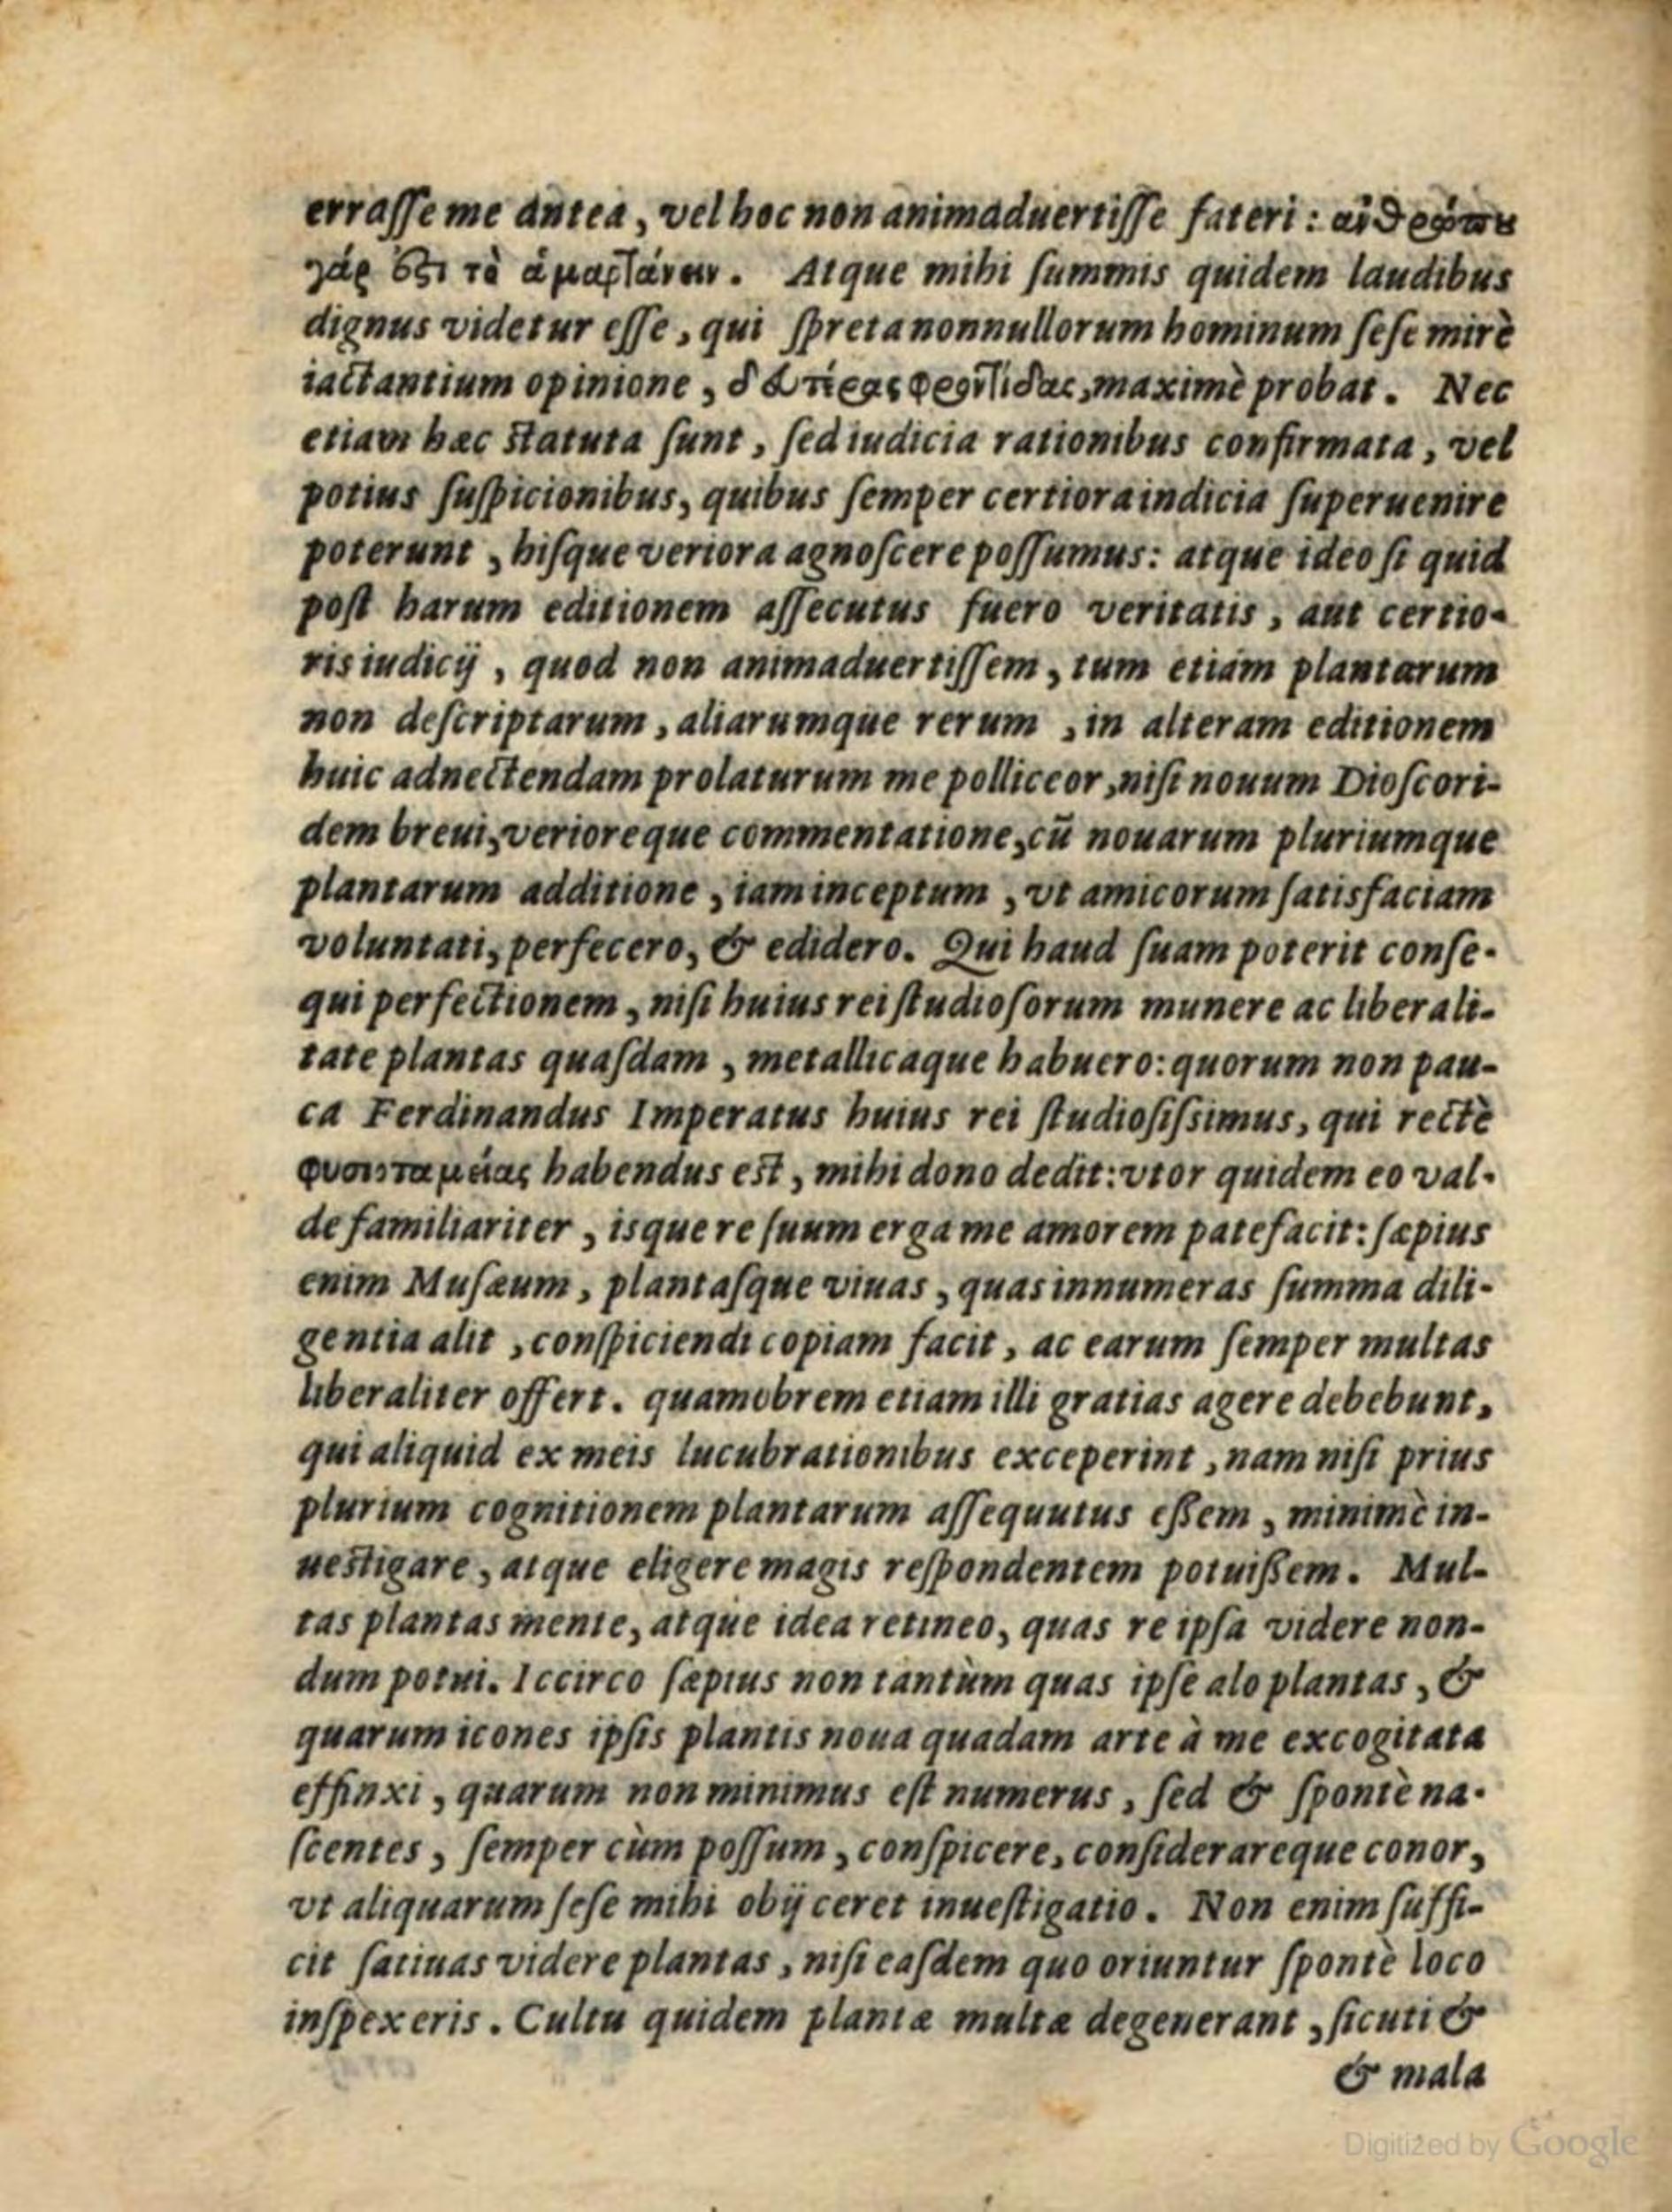 errasse me antea, vel hoc non animaduertisse fateri: ἀνθρώπου
γάρ ἐστι τὸ ἁμαρτάνειν. Atque mihi summis quidem laudibus
dignus videtur esse, qui spreta nonnullorum hominum sese mirè
iactantium opinione, δευτέρας φροντίδας, maximè probat. Nec
etiam hæc statuta sunt, sed iudicia rationibus confirmata, vel
potius suspicionibus, quibus semper certiora indicia superuenire
poterunt, hisque veriora agnoscere possumus: atque ideo si quid
post harum editionem assecutus fuero veritatis, aut certio-
ris iudicij, quod non animaduertissem, tum etiam plantarum
non descriptarum, aliarumque rerum, in alteram editionem
huic adnectendam prolaturum me polliceor, nisi nouum Dioscori-
dem breui, verioreque commentatione, cū nouarum pluriumque
plantarum additione, iam inceptum, vt amicorum satisfaciam
voluntati, perfecero, & edidero. Qui haud suam poterit conse-
qui perfectionem, nisi huius rei studiosorum munere ac liberali-
tate plantas quasdam, metallicaque habuero: quorum non pau-
ca Ferdinandus Imperatus huius rei studiosissimus, qui rectè
habendus est, mihi dono dedit: vtor quidem eo val-
de familiariter, isque re suum erga me amorem patefacit: sæpius
enim Musæum, plantasque viuas, quas innumeras summa dili-
gentia alit, conspiciendi copiam facit, ac earum semper multas
liberaliter offert. quamobrem etiam illi gratias agere debebunt,
qui aliquid ex meis lucubrationibus exceperint, nam nisi prius
plurium cognitionem plantarum assequutus eßem, minimè in-
uestigare, atque eligere magis respondentem potuißem. Mul-
tas plantas mente, atque idea retineo, quas re ipsa videre non-
dum potui. Iccirco sæpius non tantùm quas ipse alo plantas, &
quarum icones ipsis plantis noua quadam arte à me excogitata
effinxi, quarum non minimus est numerus, sed & spontè na-
scentes, semper cùm possum, conspicere, considerareque conor,
vt aliquarum sese mihi obijceret inuestigatio. Non enim suffi-
cit satiuas videre plantas, nisi easdem quo oriuntur spontè loco
inspexeris. Cultu quidem plantæ multæ degenerant, sicuti &
& mala
Digitized by Google